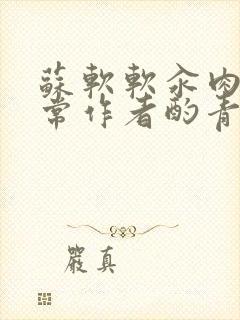 蘇軟軟汆肉
常作者酌青
嚴真